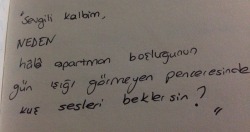 "Sevgili kalbim,
NEDEN
hâlâ apartman boşluğunun
gün ışığı görmeyen penceresinde
kuş sesleri beklersin?
"